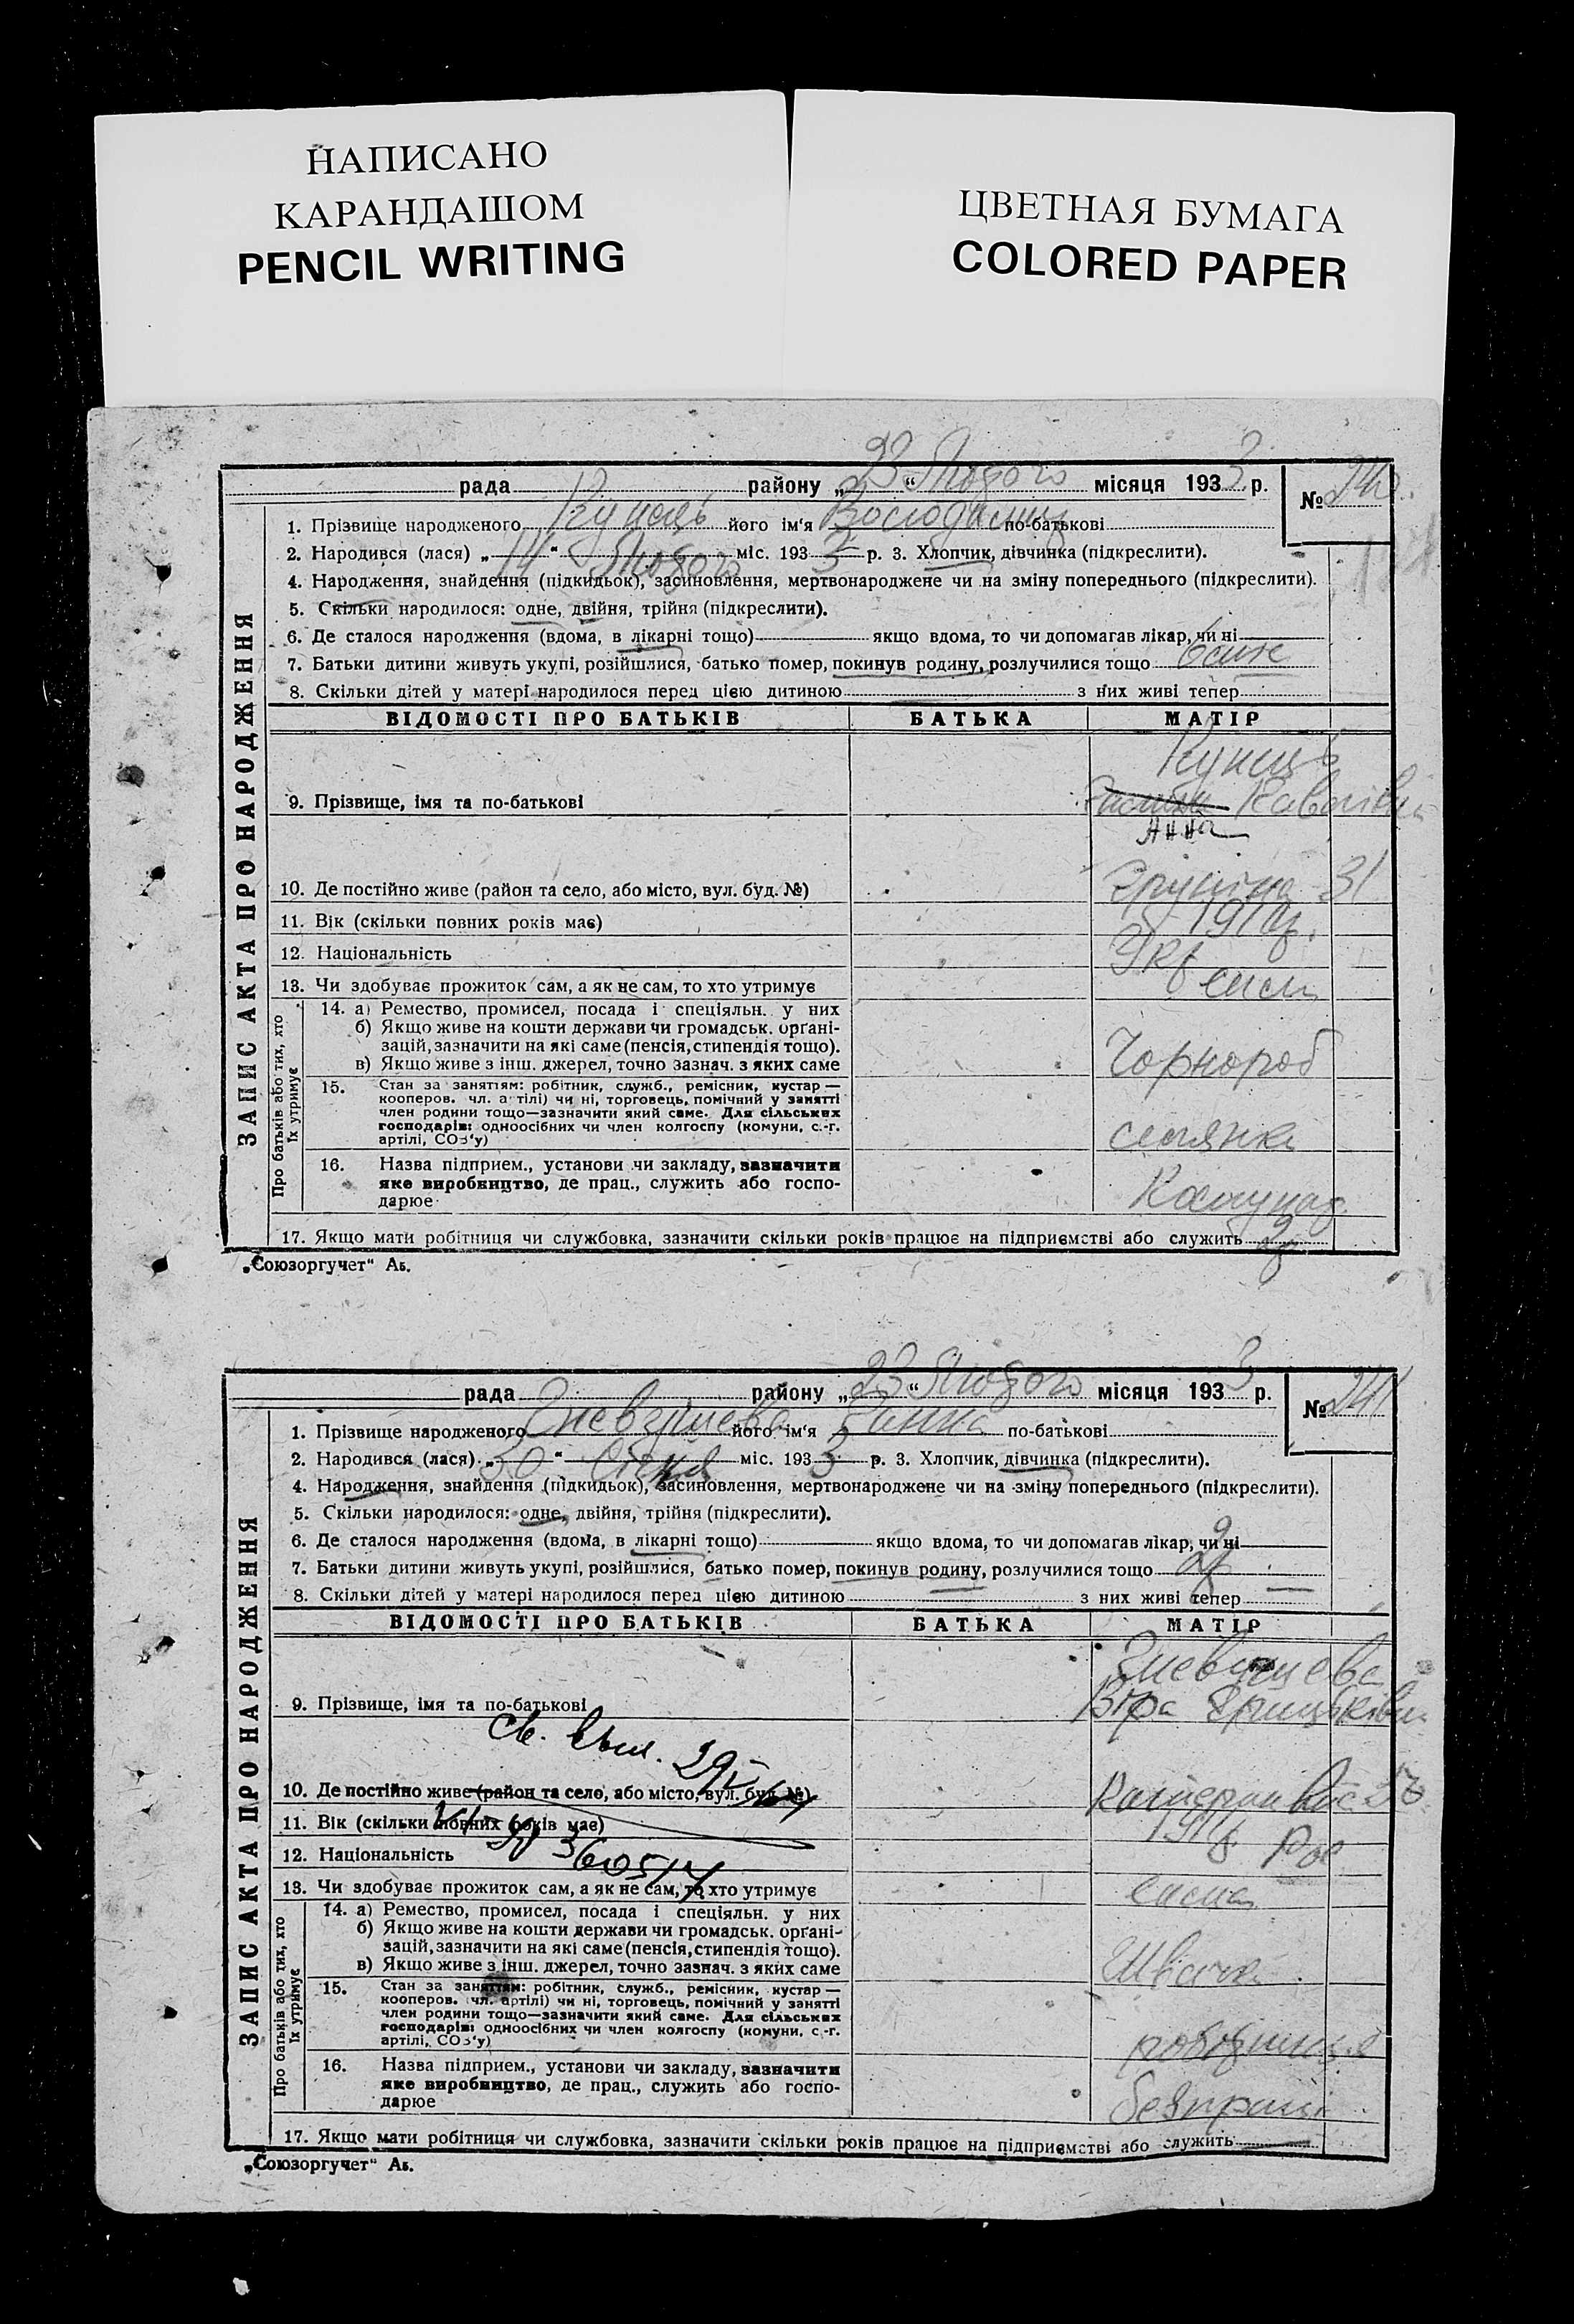 НАПИСАНО
КАРАНДАШОМ
PENCIL WRITING
ЦВЕТНАЯ БУМАГА
COLORED PAPER
ЗАПИС АКТА ПРО НАРОДЖЕННЯ
рада району „23“ Лютого місяця 1933 р. № 240.
1. Прізвище народженого Кунець його ім'я Володимир по-батькові
2. Народився (лася) „14“ Лютого міс. 1933 р. 3. Хлопчик, дівчинка (підкреслити).
4. Народження, знайдення (підкидьок), засиновлення, мертвонароджене чи на зміну попереднього (підкреслити).
5. Скільки народилося: одне, двійня, трійня (підкреслити).
6. Де сталося народження (вдома, в лікарні тощо) якщо вдома, то чи допомагав лікар, чи ні
7. Батьки дитини живуть укупі, розійшлися, батько помер, покинув родину, розлучилися тощо
8. Скільки дітей у матері народилося перед цією дитиною з них живі тепер
ВІДОМОСТІ ПРО БАТЬКІВ БАТЬКА МАТІР
Кунець
9. Прізвище, імя та по-батькові
Анна
10. Де постійно живе (район та село, або місто, вул. буд. №) 31
11. Вік (скільки повних років має) 1914р.
12. Національність Укр
13. Чи здобуває прожиток сам, а як не сам, то хто утримує
Про батьків або тих, хто їх утримує
14. а) Ремество, промисел, посада і спеціяльн. у них
б) Якщо живе на кошти держави чи громадськ. орґані-
зацій, зазначити на які саме (пенсія, стипендія тощо).
в) Якщо живе з інш. джерел, точно зазнач. з яких саме Чорнороб
15. Стан за заняттям: робітник, служб., ремісник, кустар —
кооперов. чл. артілі) чи ні, торговець, помічний у занятті
член родини тощо—зазначити який саме. Для сільських
господарів: одноосібних чи член колгоспу (комуни, с.-г.
артілі, СОЗ'у) селянка
16. Назва підприєм., установи чи закладу, зазначити
яке виробництво, де прац., служить або госпо-
дарює
17. Якщо мати робітниця чи службовка, зазначити скільки років працює на підприємстві або служить
„Союзоргучет“ Аб.
ЗАПИС АКТА ПРО НАРОДЖЕННЯ
рада району „23“ Лютого місяця 1933 р. № 241
1. Прізвище народженого його ім'я по-батькові
2. Народився (лася) „30“ Січня міс. 1933 р. 3. Хлопчик, дівчинка (підкреслити).
4. Народження, знайдення (підкидьок), засиновлення, мертвонароджене чи на зміну попереднього (підкреслити).
5. Скільки народилося: одне, двійня, трійня (підкреслити).
6. Де сталося народження (вдома, в лікарні тощо) якщо вдома, то чи допомагав лікар, чи ні
7. Батьки дитини живуть укупі, розійшлися, батько помер, покинув родину, розлучилися тощо
8. Скільки дітей у матері народилося перед цією дитиною з них живі тепер
ВІДОМОСТІ ПРО БАТЬКІВ БАТЬКА МАТІР
9. Прізвище, імя та по-батькові Віра
10. Де постійно живе (район та село, або місто, вул. буд. №)
11. Вік (скільки повних років має)
12. Національність Рос
360514
13. Чи здобуває прожиток сам, а як не сам, то хто утримує
Про батьків або тих, хто їх утримує
14. а) Ремество, промисел, посада і спеціяльн. у них
б) Якщо живе на кошти держави чи громадськ. орґані-
зацій, зазначити на які саме (пенсія, стипендія тощо).
в) Якщо живе з інш. джерел, точно зазнач. з яких саме Швачка
15. Стан за заняттям: робітник, служб., ремісник, кустар —
кооперов. чл. артілі) чи ні, торговець, помічний у занятті
член родини тощо—зазначити який саме. Для сільських
господарів: одноосібних чи член колгоспу (комуни, с.-г.
артілі, СОЗ'у) робітниця
16. Назва підприєм., установи чи закладу, зазначити
яке виробництво, де прац., служить або госпо-
дарює безпраці
17. Якщо мати робітниця чи службовка, зазначити скільки років працює на підприємстві або служить
„Союзоргучет“ Аб.